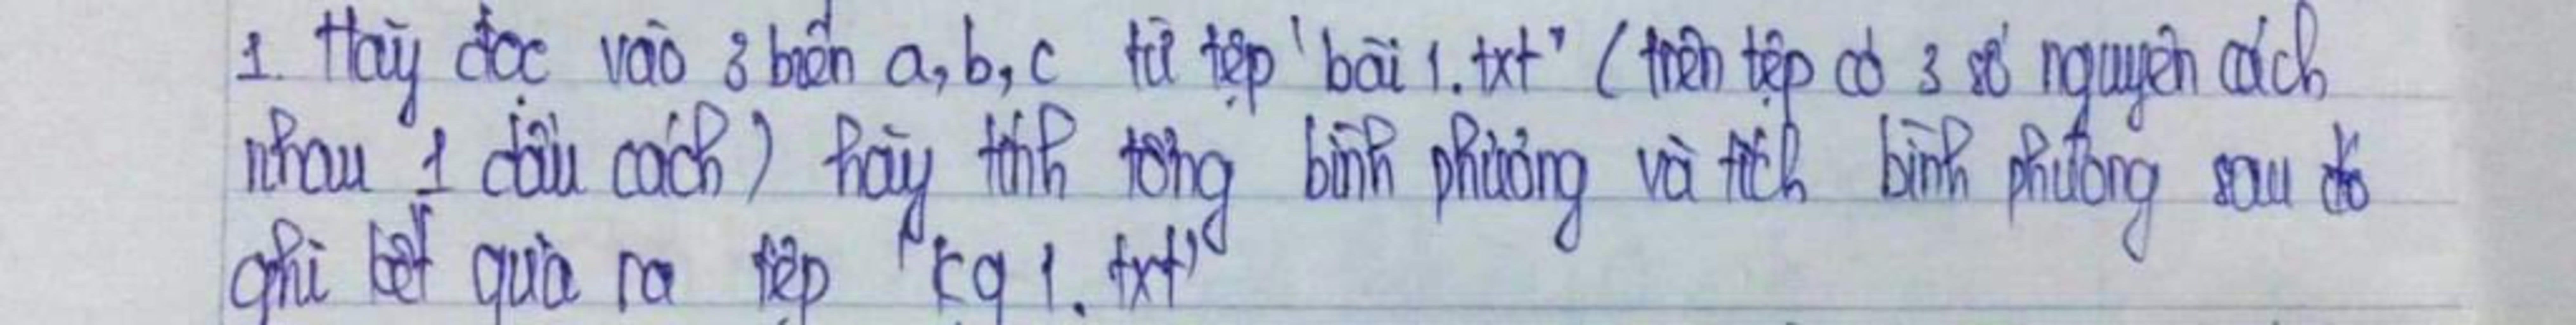 1. Hãy đọc vào 3 biến a, b, c từ tệp 'bài 1.txt" (trên tệp có 3 số nguyên cách
nhau 1 dấu cách) hãy tính tổng bình phương và tích bình phương sau đó
ghi kết quả ra tệp "kq 1. txt"